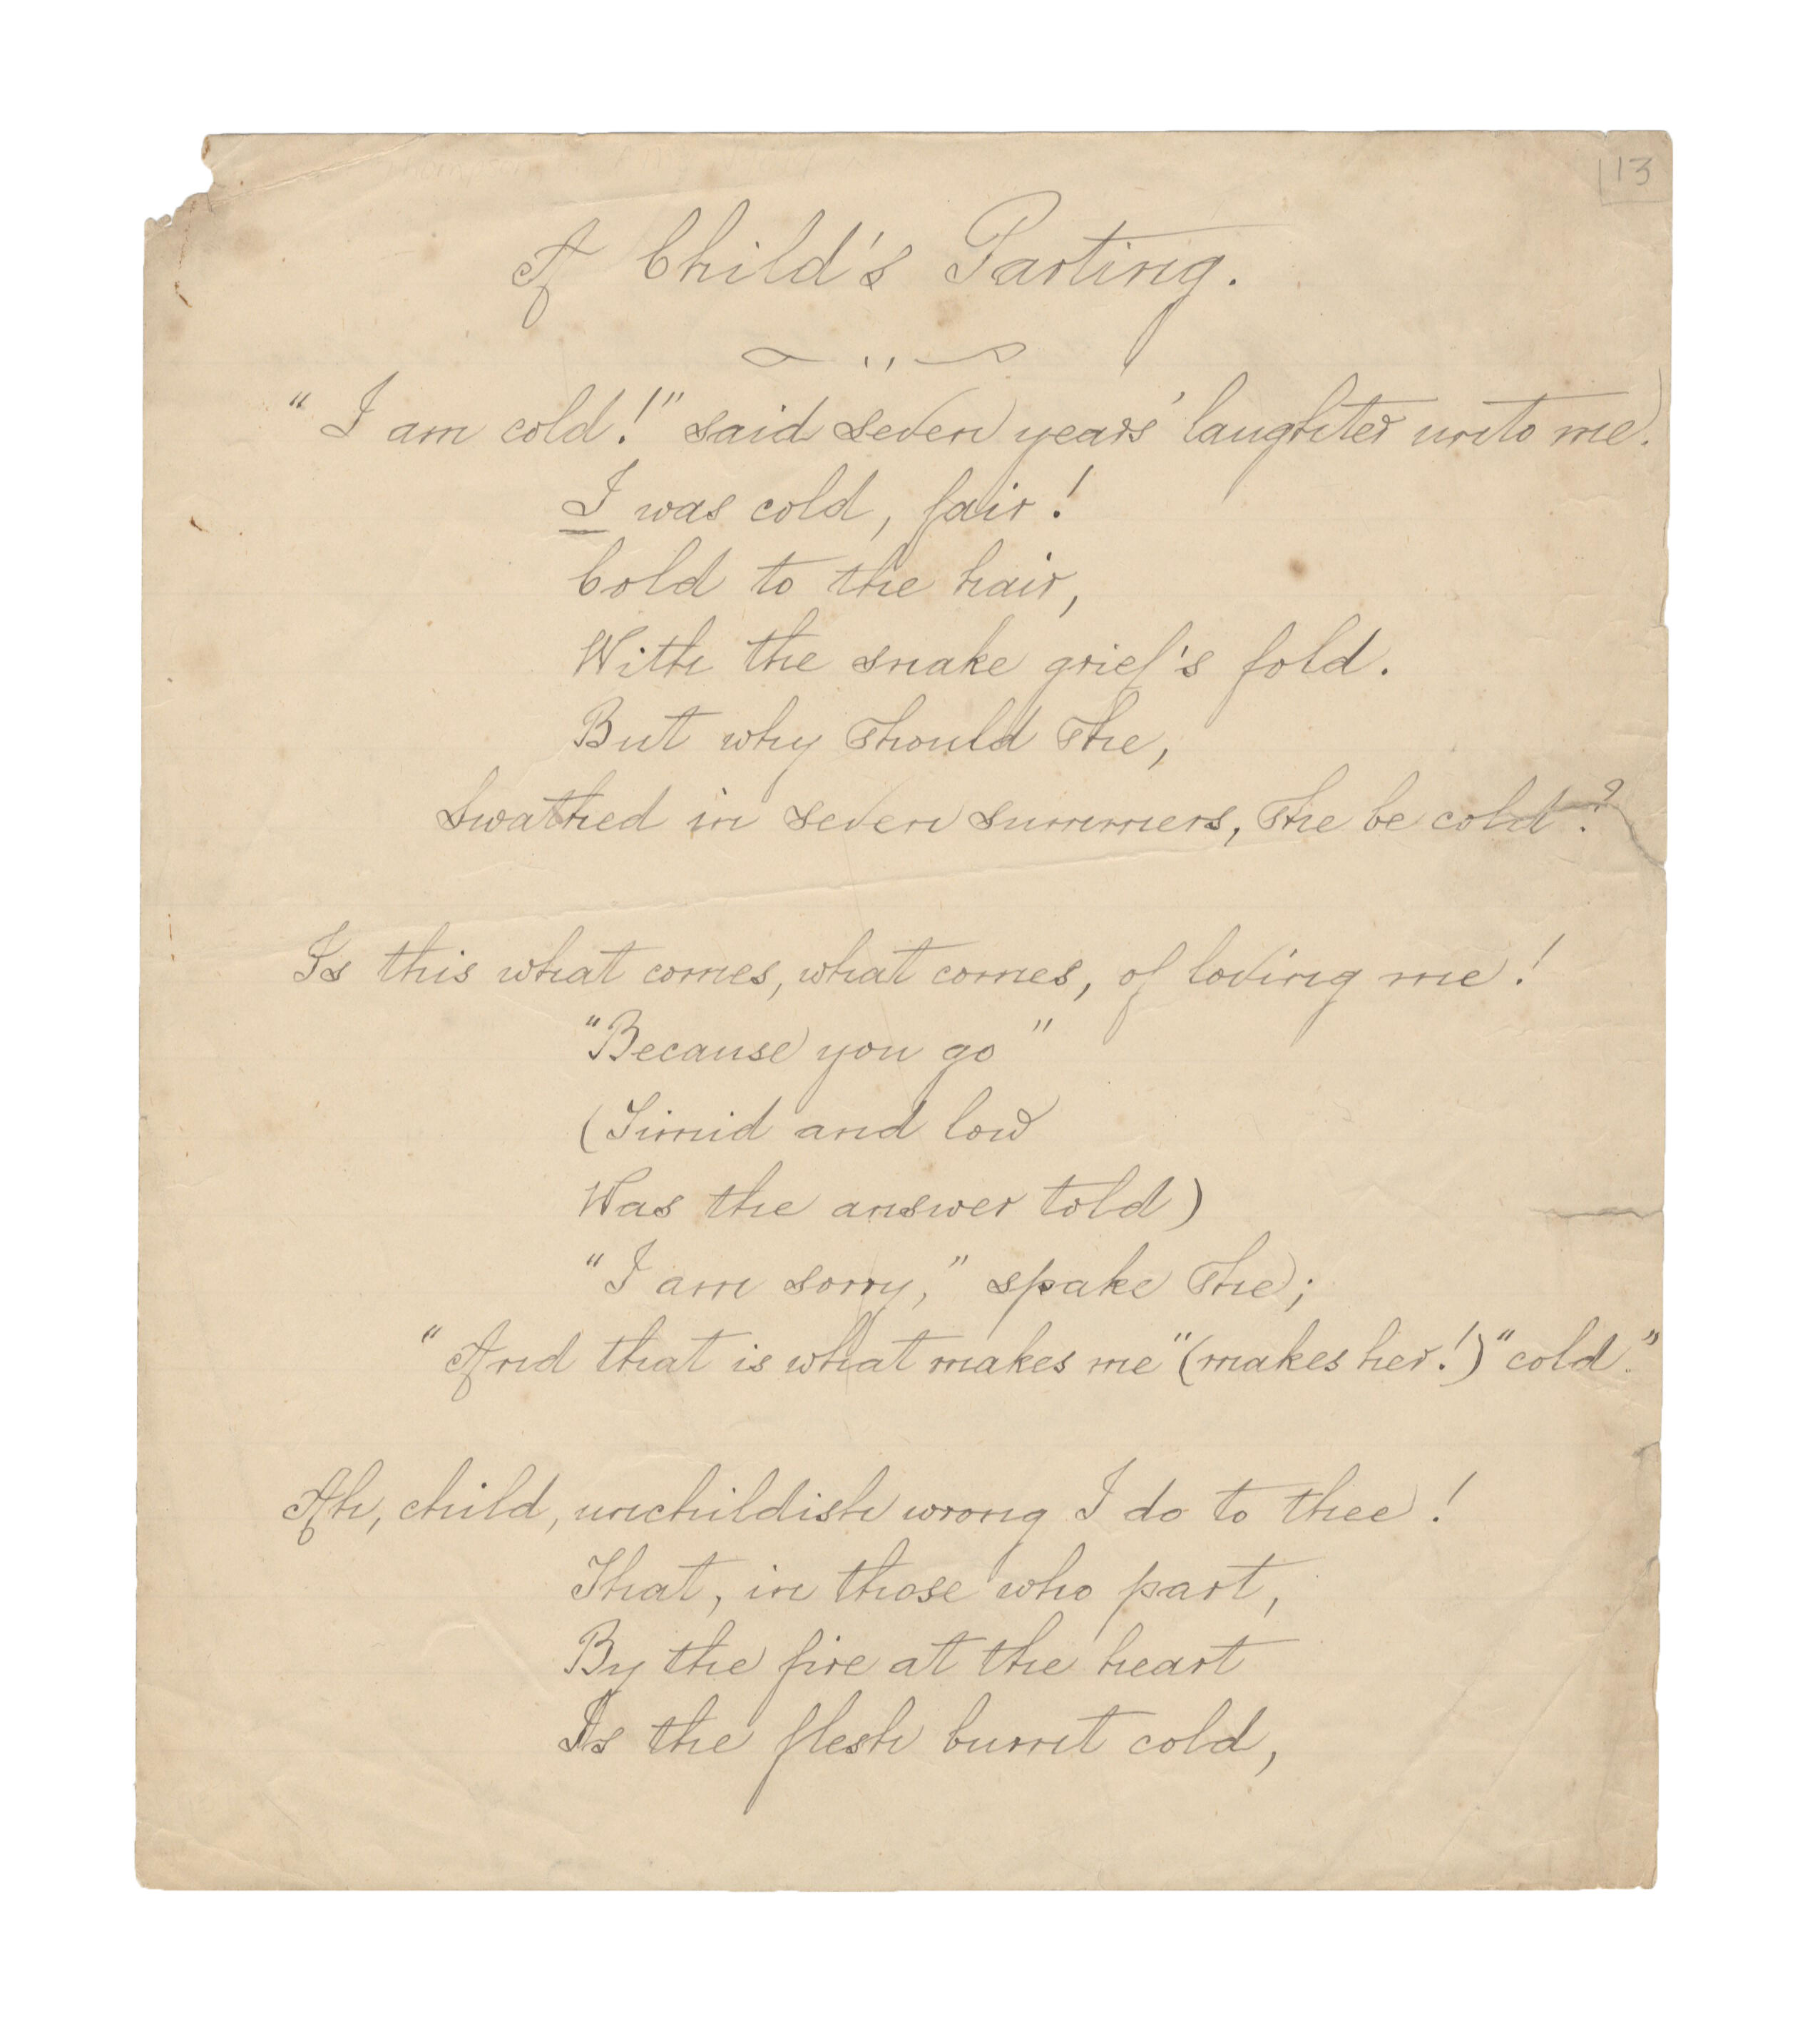 13
A Child's Parting.
"I am cold!" said seven years' laughter unto me.
I was cold, fair!
Cold to the hair,
With the snake grief's fold.
But why should she,
Swathed in seven summers, she be cold?
Is this what comes, what comes, of loving me!
"Because you go"
(Timid and low
Was the answer told)
"I am sorry," spake she;
"And that is what makes me" (makes her!) "cold."
Ah, child, unchildish wrong I do to thee!
That, in those who part,
By the fire at the heart
Is the flesh burnt cold,